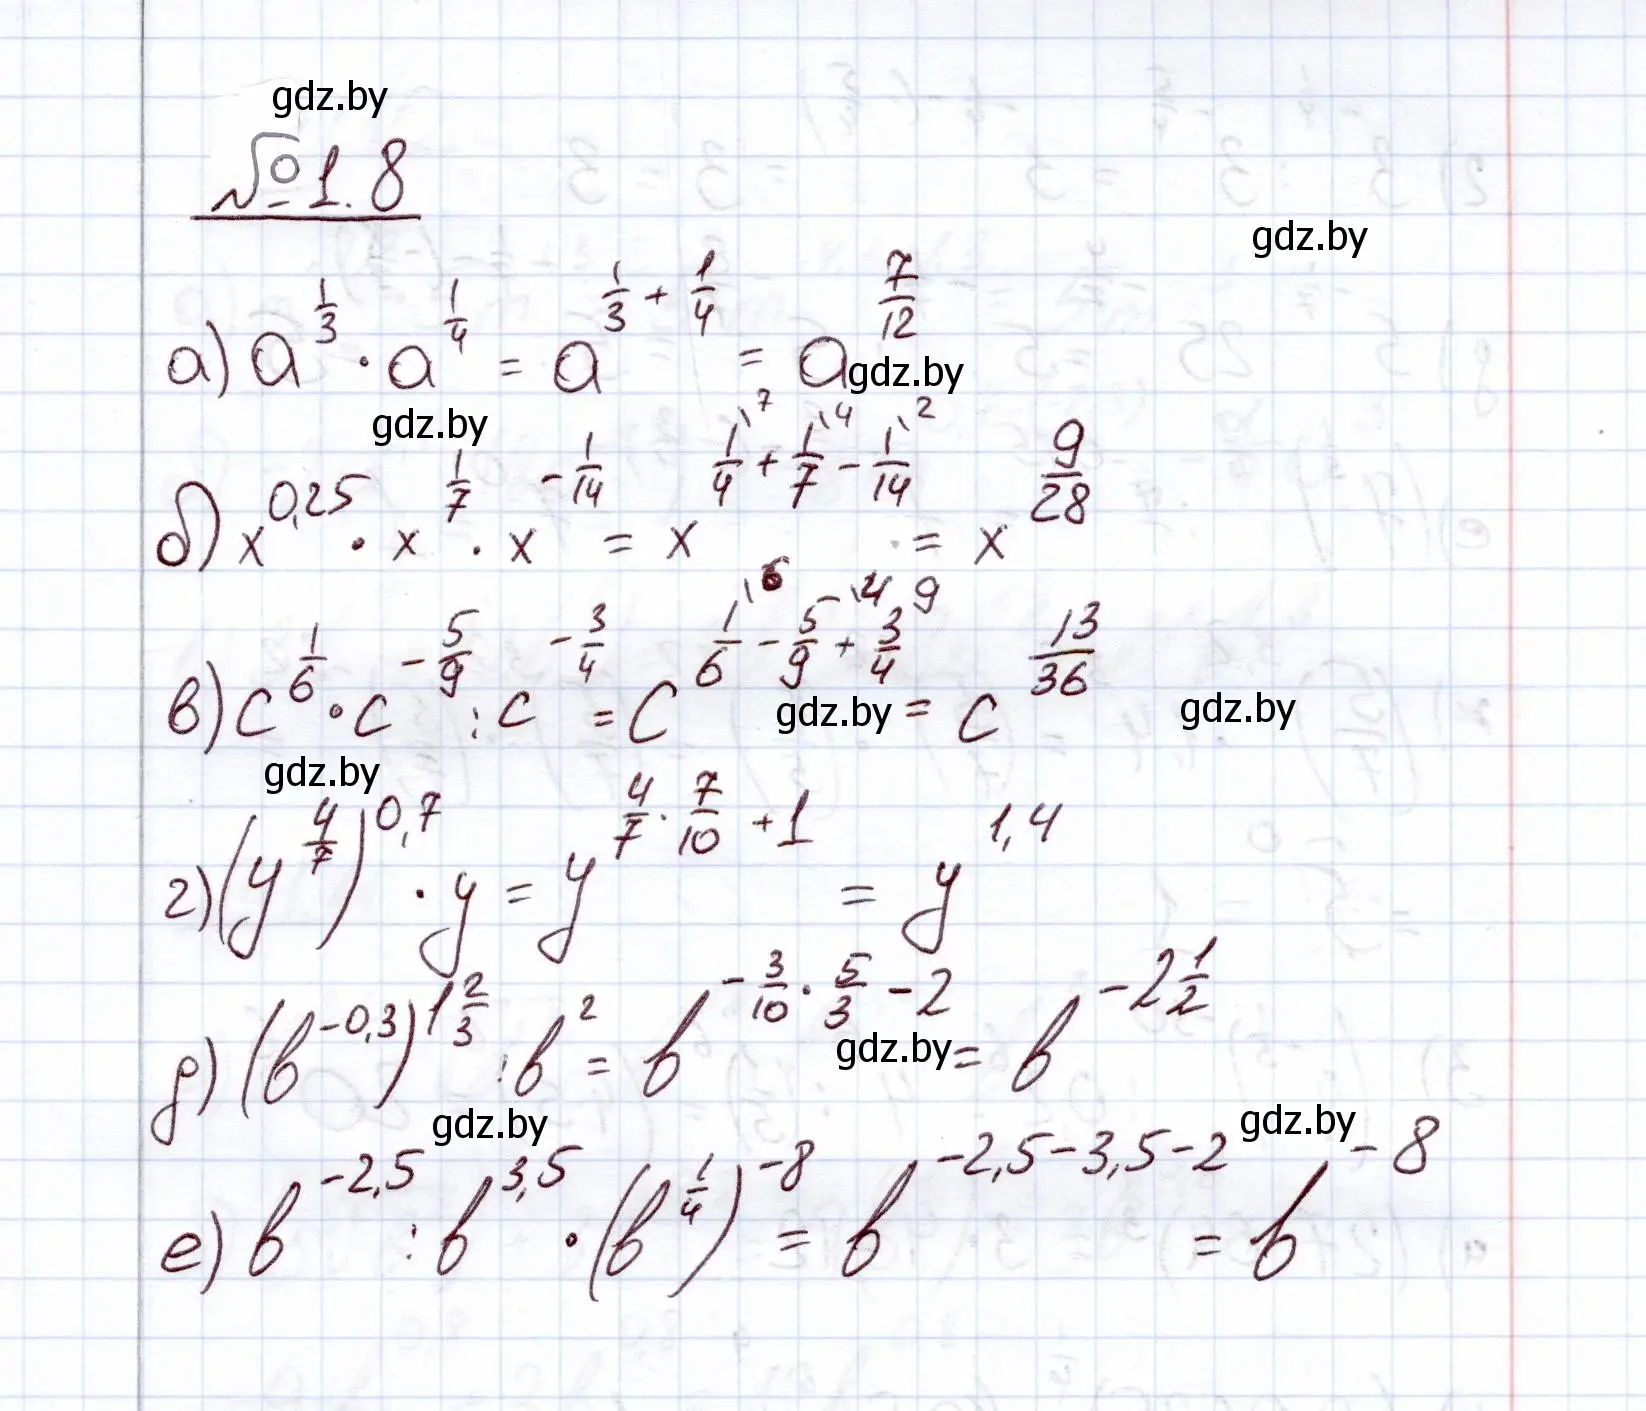 gdz.by
№ 1.8
gdz.by
а) a^{1/3} · a^{1/4} = a^{1/3 + 1/4} = a^{7/12}
gdz.by
gdz.by
б) x^{0,25} · x^{1/7} · x^{-1/14} = x^{1/4\7 + 1/7\4 - 1/14\2} = x^{9/28}
в) c^{1/6} · c^{-5/9} : c^{-3/4} = c^{1/6\6 - 5/9\4 + 3/4\9} = c^{13/36}
gdz.by gdz.by
gdz.by
г) (y^{4/7})^{0,7} · y = y^{4/7 · 7/10 + 1} = y^{1,4}
д) (b^{-0,3})^{1 2/3} : b^2 = b^{-3/10 · 5/3 - 2} = b^{-2 1/2}
gdz.by
gdz.by gdz.by
е) b^{-2,5} : b^{3,5} · (b^{1/4})^{-8} = b^{-2,5-3,5-2} = b^{-8}